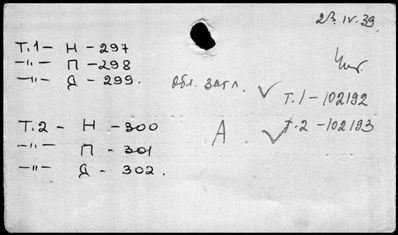 23.IV.39.
Т.1 - Н - 297
-"- П - 298
-"- Д - 299.
обл. загл. ✓ Т.1 - 102192
Т.2 - Н - 300
-"- П - 301
-"- Д - 302.
А ✓ Т.2 - 102193